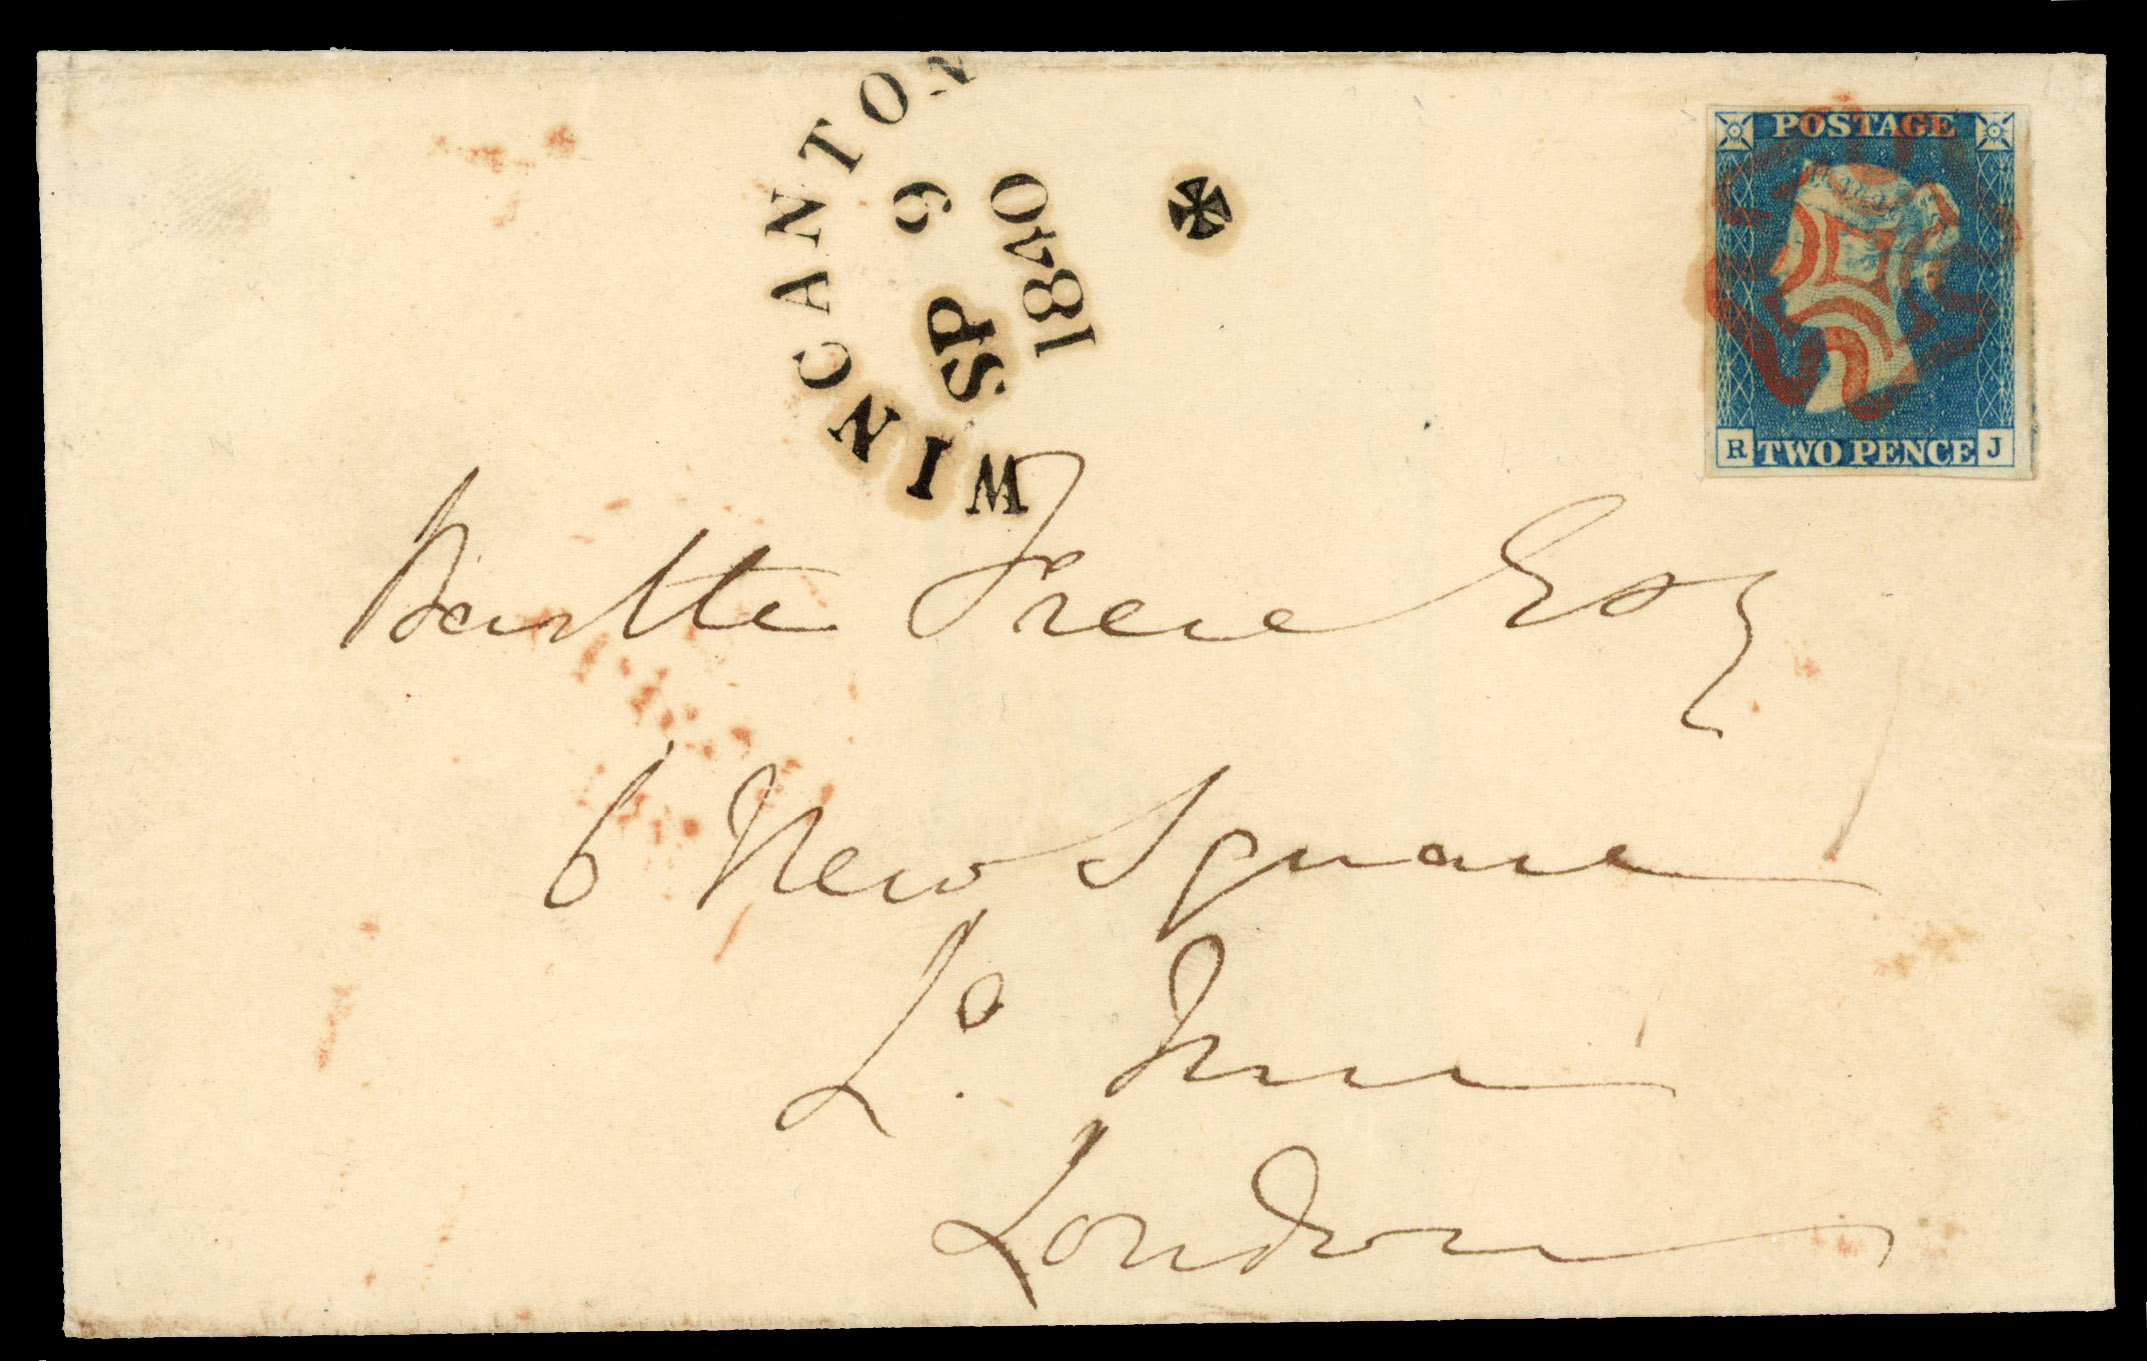 WINCANTON
SP 9
1840
POSTAGE
R TWO PENCE J
Bartle Frere Esq
6 New Square
Lo. Inn
London